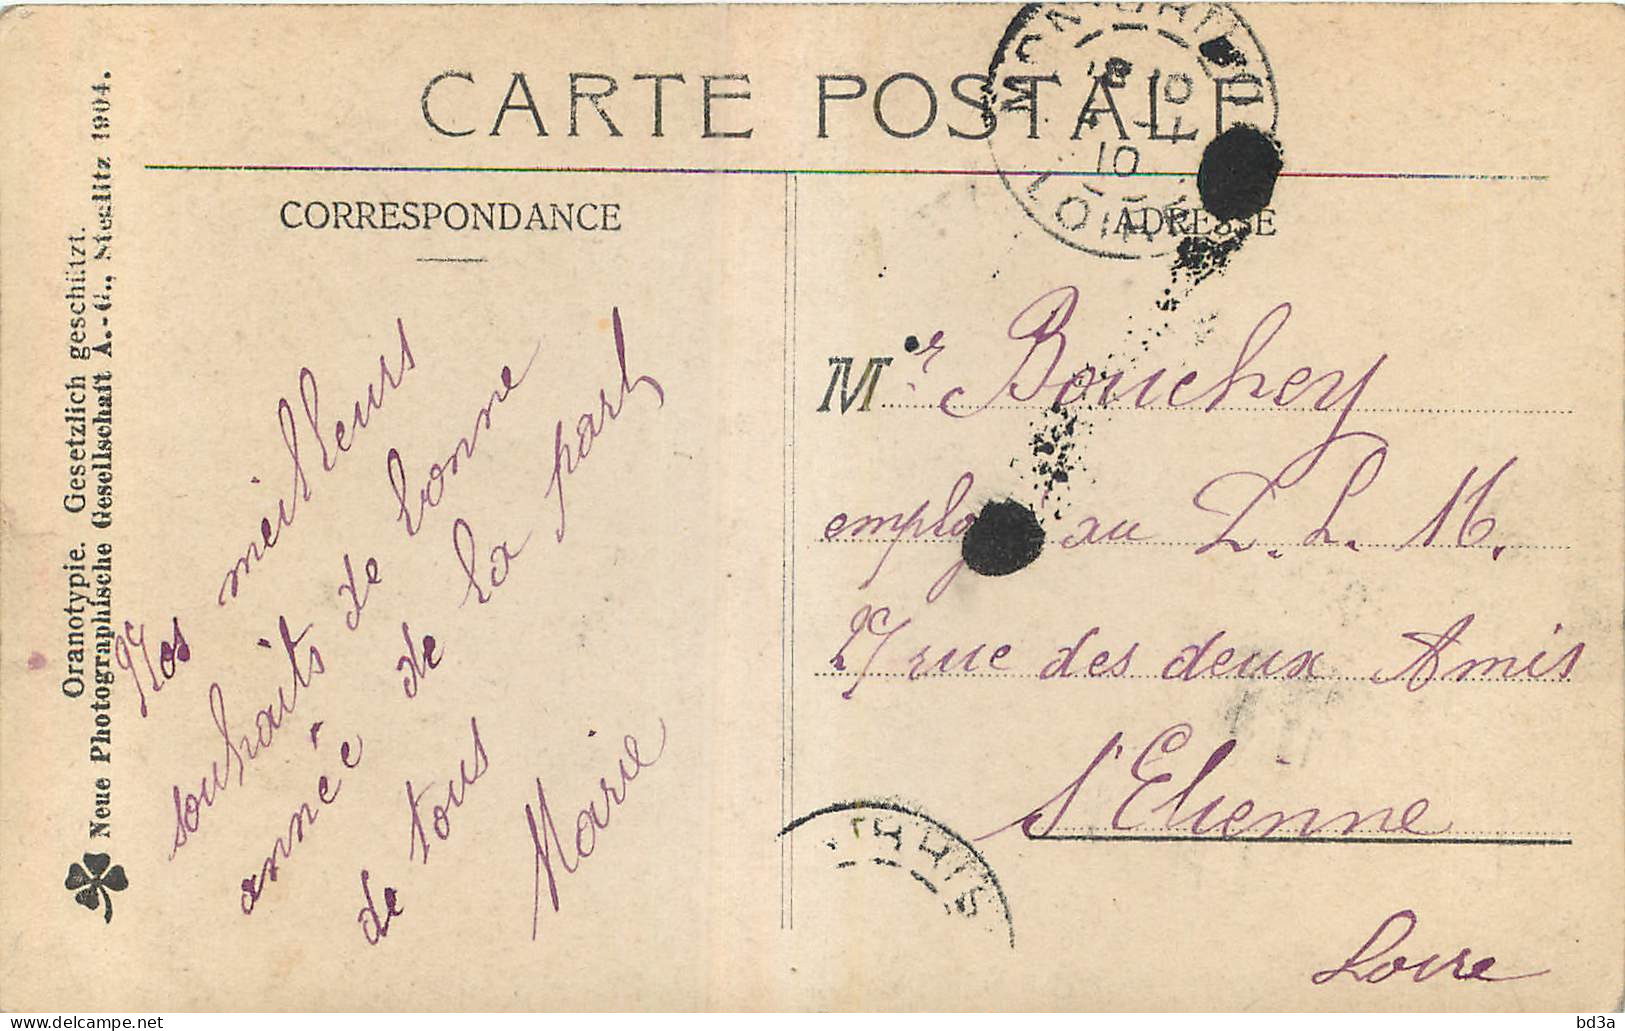 CARTE POSTALE
CORRESPONDANCE
ADRESSE
Oranotypie. Gesetzlich geschützt.
Neue Photographische Gesellschaft A.-G., Steglitz 1904.
Nos meilleurs
souhaits de bonne
année de la part
de tous
Marie
Mr Bouchey
au P. L. M.
27 rue des deux Amis
St Etienne
Loire
10
LOIRE
bd3a